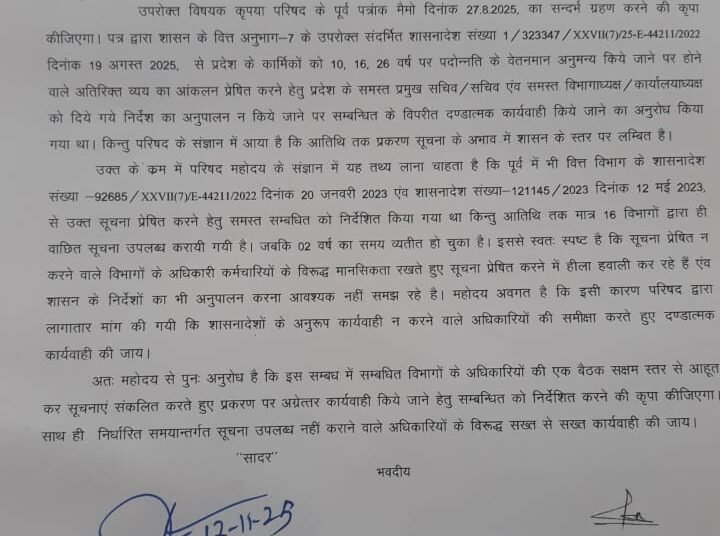 उपरोक्त विषयक कृपया परिषद के पूर्व पत्रांक मैमो दिनांक 27.8.2025, का सन्दर्भ ग्रहण करने की कृपा
कीजिएगा। पत्र द्वारा शासन के वित्त अनुभाग-7 के उपरोक्त संदर्भित शासनादेश संख्या 1/323347/XXVII(7)/25-E-44211/2022
दिनांक 19 अगस्त 2025, से प्रदेश के कार्मिकों को 10, 16, 26 वर्ष पर पदोन्नति के वेतनमान अनुमन्य किये जाने पर होने
वाले अतिरिक्त व्यय का आंकलन प्रेषित करने हेतु प्रदेश के समस्त प्रमुख सचिव/सचिव एंव समस्त विभागाध्यक्ष/कार्यालयाध्यक्ष
को दिये गये निर्देश का अनुपालन न किये जाने पर सम्बन्धित के विपरीत दण्डात्मक कार्यवाही किये जाने का अनुरोध किया
गया था। किन्तु परिषद के संज्ञान में आया है कि आतिथि तक प्रकरण सूचना के अभाव में शासन के स्तर पर लम्बित है।
उक्त के क्रम में परिषद महोदय के संज्ञान में यह तथ्य लाना चाहता है कि पूर्व में भी वित्त विभाग के शासनादेश
संख्या –92685/XXVII(7)/E-44211/2022 दिनांक 20 जनवरी 2023 एंव शासनादेश संख्या-121145/2023 दिनांक 12 मई 2023,
से उक्त सूचना प्रेषित करने हेतु समस्त सम्बधित को निर्देशित किया गया था किन्तु आतिथि तक मात्र 16 विभागों द्वारा ही
वाछित सूचना उपलब्ध करायी गयी है। जबकि 02 वर्ष का समय व्यतीत हो चुका है। इससे स्वतः स्पष्ट है कि सूचना प्रेषित न
करने वाले विभागों के अधिकारी कर्मचारियों के विरूद्ध मानसिकता रखते हुए सूचना प्रेषित करने में हीला हवाली कर रहे हैं एंव
शासन के निर्देशों का भी अनुपालन करना आवश्यक नहीं समझ रहे है। महोदय अवगत है कि इसी कारण परिषद द्वारा
लागातार मांग की गयी कि शासनादेशों के अनुरूप कार्यवाही न करने वाले अधिकारियों की समीक्षा करते हुए दण्डात्मक
कार्यवाही की जाय।
अतः महोदय से पुनः अनुरोध है कि इस सम्बध में सम्बधित विभागों के अधिकारियों की एक बैठक सक्षम स्तर से आहूत
कर सूचनाएं संकलित करते हुए प्रकरण पर अग्रेत्तर कार्यवाही किये जाने हेतु सम्बन्धित को निर्देशित करने की कृपा कीजिएगा।
साथ ही निर्धारित समयान्तर्गत सूचना उपलब्ध नहीं कराने वाले अधिकारियों के विरूद्ध सख्त से सख्त कार्यवाही की जाय।
"सादर"
भवदीय
12-11-25